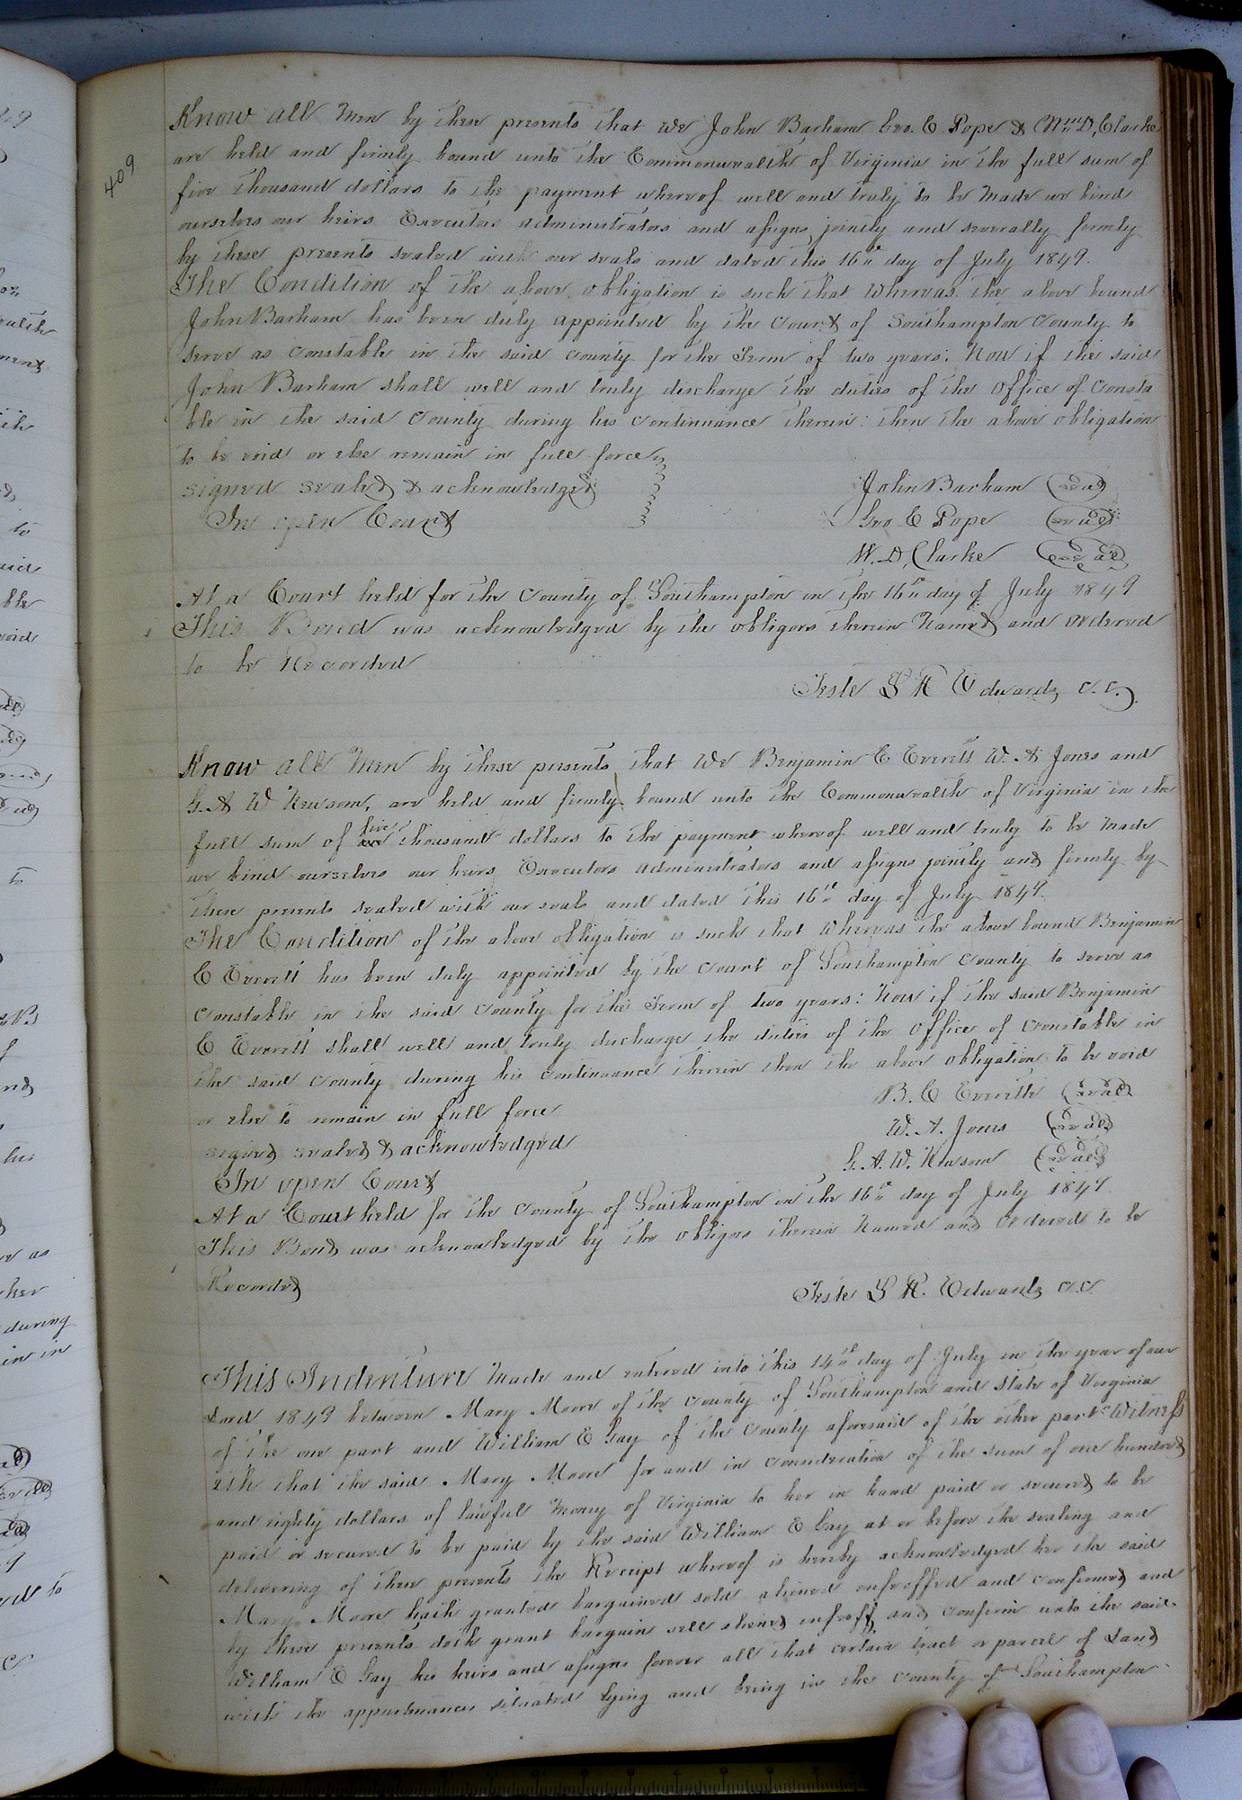 409
Know all Men by these presents that we John Barham Geo. E Pope & Wm. D. Clarke
are held and firmly bound unto the Commonwealth of Virginia in the full sum of
five thousand dollars to the payment whereof well and truly to be Made we bind
ourselves our heirs Executors administrators and assigns jointly and severally firmly
by these presents sealed with our seals and dated this 16th day of July 1849.
The Condition of the above obligation is such that Whereas the above bound
John Barham has been duly appointed by the Court of Southampton County to
serve as constable in the said county for the Term of two years: Now if the said
John Barham shall well and truly discharge the duties of the Office of Consta
ble in the said County during his continuance therein: then the above obligation
to be void or else remain in full force
signed sealed & acknowledged
In open Court
John Barham (seal)
Geo E Pope (seal)
W. D. Clarke (seal)
At a Court held for the County of Southampton on the 16th day of July 1849
This Bond was acknowledged by the obligors therein Named and ordered
to be Recorded
Teste L R Edwards C.C.
Know all Men by these presents that We Benjamin E Everett W. A Jones and
G. A W Newsom, are held and firmly bound unto the Commonwealth of Virginia in the
full sum of five thousand dollars to the payment whereof well and truly to be Made
we bind ourselves our heirs Executors administrators and assigns jointly and firmly by
these presents sealed with our seals and dated this 16th day of July 1849.
The Condition of the above obligation is such that Whereas the above bound Benjamin
E Everett has been duly appointed by the Court of Southampton County to serve as
constable in the said County for the Term of two years: Now if the said Benjamin
E Everett shall well and truly discharge the duties of the Office of Constable in
the said County during his continuance therein then the above obligation to be void
or else to remain in full force
signed sealed & acknowledged
In open Court
B. E Everitt (seal)
W. A. Jones (seal)
G. A. W. Newsom (seal)
At a Court held for the County of Southampton on the 16th day of July 1849
This Bond was acknowledged by the obligors therein Named and Ordered to be
Recorded
Teste L R. Edwards C.C
This Indenture Made and entered into this 14th day of July in the year of our
Lord 1849 between Mary Moore of the County of Southampton and State of Virginia
of the one part and William E Gay of the County aforesaid of the other part Witness
eth that the said Mary Moore for and in consideration of the sum of one hundred
and eighty dollars of lawful Money of Virginia to her in hand paid or secured to be
paid or secured to be paid by the said William E Gay at or before the sealing and
delivering of these presents the Receipt whereof is hereby acknowledged her the said
Mary Moore hath granted bargained sold aliened enfeoffed and confirmed and
by these presents doth grant bargain sell aliened enfeoff and confirm unto the said
William E Gay his heirs and assigns forever all that certain tract or parcel of Land
with the appurtenances situated lying and being in the County of Southampton